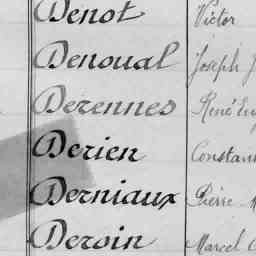 Denot Victor
Denoual Joseph
Derennes René
Derien
Derniaux Pierre
Deroin Marcel